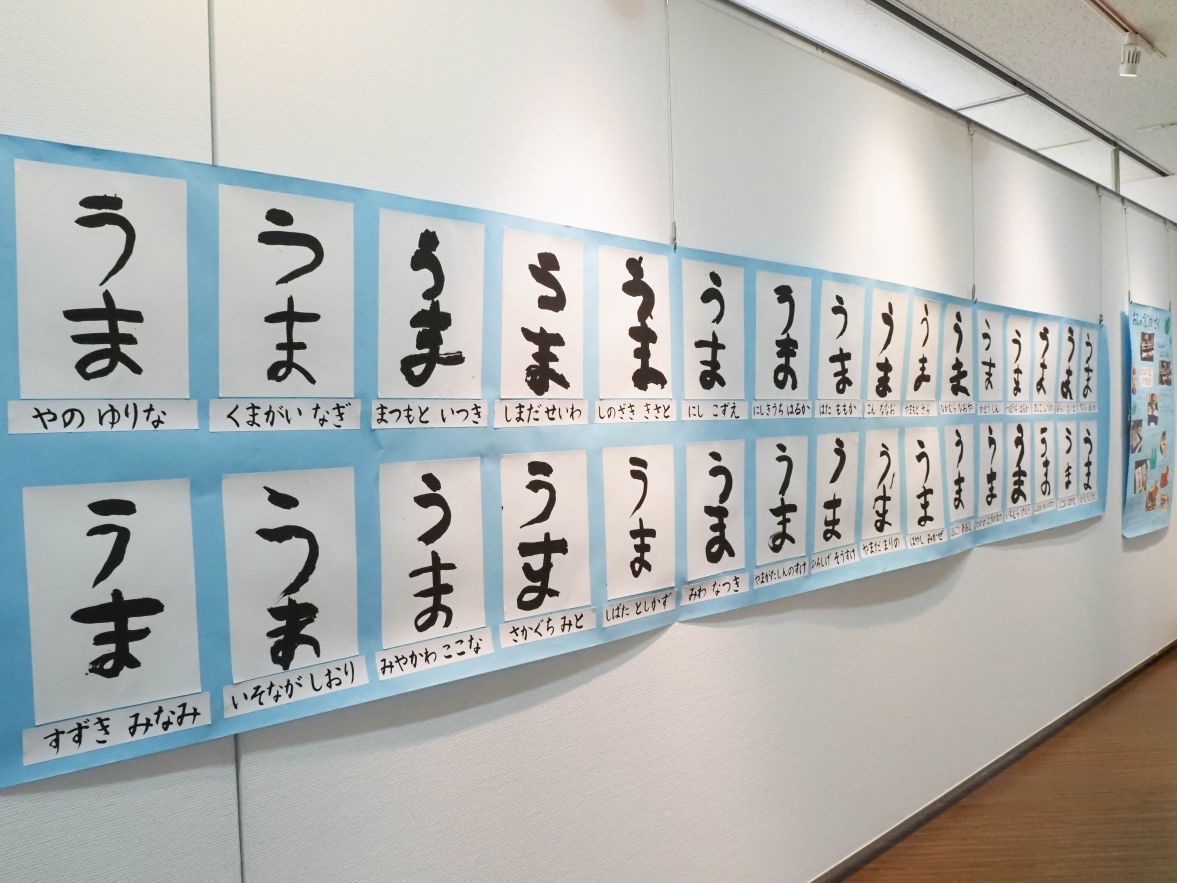 うま うま うま うま うま うま うま うま うま うま うま うま うま うま うま うま
やの ゆりな
くまがい なぎ
まつもと いつき
しまだ せいわ
しのざき きさと
にし こずえ
にしきうち はるか
はた ももか
こん ななお
なかむら なおや
うま うま うま うま うま うま うま うま うま うま うま うま うま うま うま うま
すずき みなみ
いそなが しおり
みやかわ ここな
さかぐち みと
しばた としかず
みわ なつき
やまがた しんのすけ
ひらしげ そうすけ
やまだ まりの
はやし みかぜ